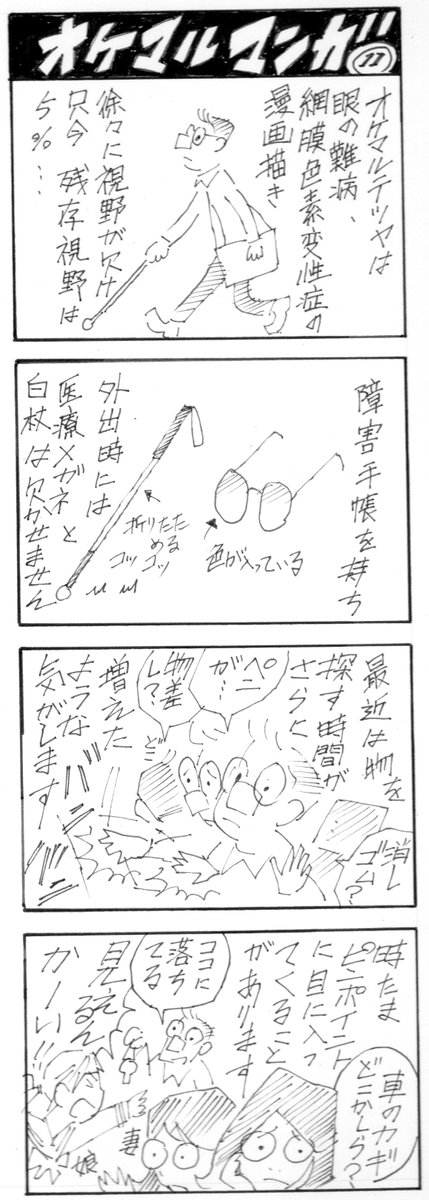 オケマルマンガ
77
オケマルテツヤは
眼の難病、
網膜色素変性症の
漫画描き
徐々に視野が欠け
只今 残存視野は
5%…
障害手帳を持ち
色が入っている
折りたた
める
コッ
コツ
外出時には
医療メガネと
白杖は欠かせません
最近は物を
探す時間が
さらに
ペン
が…
物差
し?
どこ
増えた
ような
気がします
消し
ゴム?
車のカギ
どこかしら?
時たま
ピンポイント
に目に入っ
てくること
があります
ココに
落ち
てる
見えるん
かーい!!
妻
娘